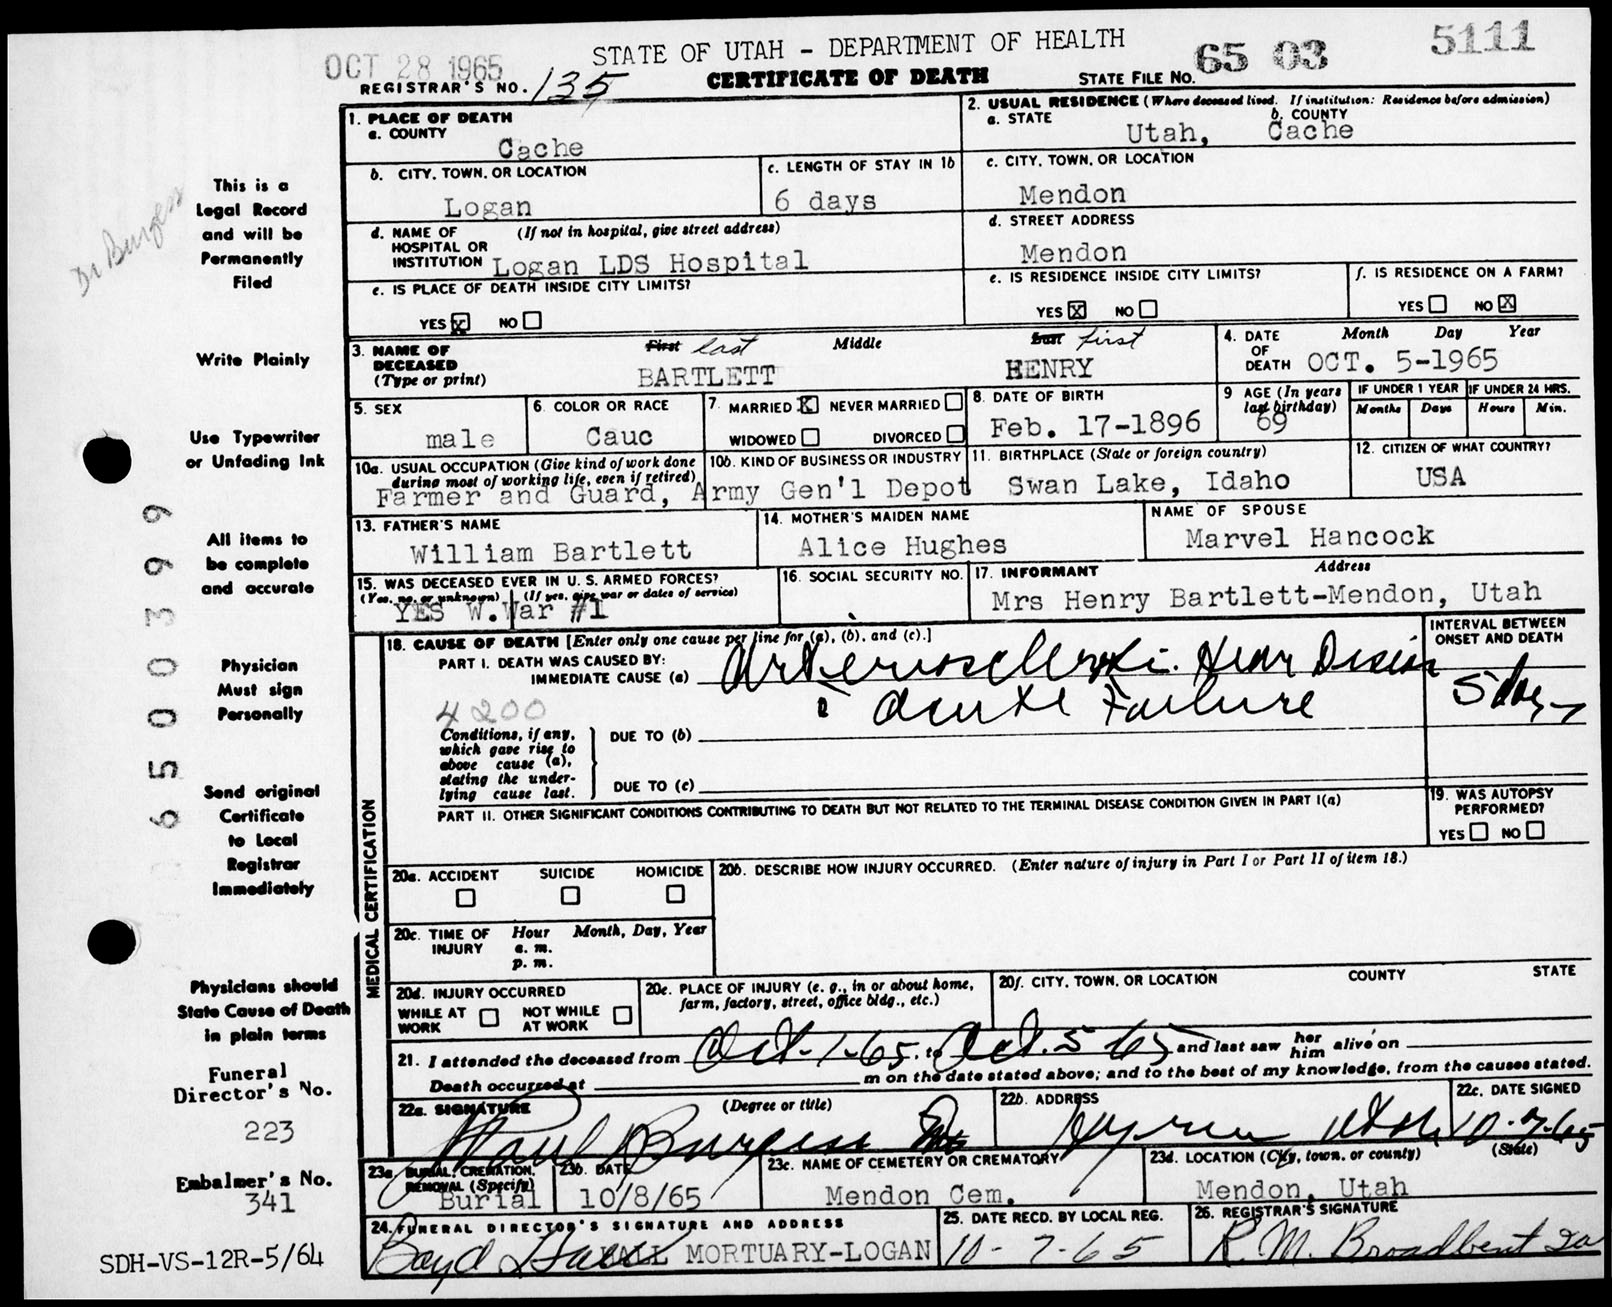 STATE OF UTAH - DEPARTMENT OF HEALTH
CERTIFICATE OF DEATH
OCT 28 1965
REGISTRAR'S NO. 135
STATE FILE NO. 65 03 5111
1. PLACE OF DEATH
a. COUNTY
Cache
2. USUAL RESIDENCE (Where deceased lived. If institution: Residence before admission)
a. STATE
Utah,
b. COUNTY
Cache
b. CITY, TOWN, OR LOCATION
Logan
c. LENGTH OF STAY IN 1b
6 days
c. CITY, TOWN, OR LOCATION
Mendon
d. NAME OF HOSPITAL OR INSTITUTION (If not in hospital, give street address)
Logan LDS Hospital
d. STREET ADDRESS
Mendon
e. IS PLACE OF DEATH INSIDE CITY LIMITS?
YES X NO
e. IS RESIDENCE INSIDE CITY LIMITS?
YES X NO
f. IS RESIDENCE ON A FARM?
YES NO X
3. NAME OF DECEASED (Type or print)
First last Middle Last first
BARTLETT HENRY
4. DATE OF DEATH Month Day Year
OCT. 5-1965
5. SEX
male
6. COLOR OR RACE
Cauc
7. MARRIED X NEVER MARRIED
WIDOWED DIVORCED
8. DATE OF BIRTH
Feb. 17-1896
9 AGE (In years last birthday)
69
IF UNDER 1 YEAR
Months Days
IF UNDER 24 HRS.
Hours Min.
10a. USUAL OCCUPATION (Give kind of work done during most of working life, even if retired)
10b. KIND OF BUSINESS OR INDUSTRY
Farmer and Guard, Army Gen'l Depot
11. BIRTHPLACE (State or foreign country)
Swan Lake, Idaho
12. CITIZEN OF WHAT COUNTRY?
USA
13. FATHER'S NAME
William Bartlett
14. MOTHER'S MAIDEN NAME
Alice Hughes
NAME OF SPOUSE
Marvel Hancock
15. WAS DECEASED EVER IN U. S. ARMED FORCES?
(Yes, no, or unknown) (If yes, give war or dates of service)
YES W.War #1
16. SOCIAL SECURITY NO.
17. INFORMANT Address
Mrs Henry Bartlett-Mendon, Utah
MEDICAL CERTIFICATION
18. CAUSE OF DEATH [Enter only one cause per line for (a), (b), and (c).]
PART I. DEATH WAS CAUSED BY:
IMMEDIATE CAUSE (a)
Acute Failure
INTERVAL BETWEEN ONSET AND DEATH
5 days
4200
Conditions, if any, which gave rise to above cause (a), stating the underlying cause last.
DUE TO (b)
DUE TO (c)
PART II. OTHER SIGNIFICANT CONDITIONS CONTRIBUTING TO DEATH BUT NOT RELATED TO THE TERMINAL DISEASE CONDITION GIVEN IN PART I(a)
19. WAS AUTOPSY PERFORMED?
YES NO
20a. ACCIDENT SUICIDE HOMICIDE
20b. DESCRIBE HOW INJURY OCCURRED. (Enter nature of injury in Part I or Part II of item 18.)
20c. TIME OF INJURY Hour Month, Day, Year
a. m.
p. m.
20d. INJURY OCCURRED
WHILE AT WORK NOT WHILE AT WORK
20e. PLACE OF INJURY (e. g., in or about home, farm, factory, street, office bldg., etc.)
20f. CITY, TOWN, OR LOCATION COUNTY STATE
21. I attended the deceased from Oct-1-65. to Oct. 5 65 and last saw her him alive on
Death occurred at m on the date stated above; and to the best of my knowledge, from the causes stated.
22a. SIGNATURE (Degree or title)
Paul Burgess
22b. ADDRESS
Hyrum Utah
22c. DATE SIGNED
10-7-65
23a BURIAL, CREMATION, REMOVAL (Specify)
Burial
23b. DATE
10/8/65
23c. NAME OF CEMETERY OR CREMATORY
Mendon Cem.
23d. LOCATION (City, town, or county) (State)
Mendon, Utah
24. FUNERAL DIRECTOR'S SIGNATURE AND ADDRESS
HALL MORTUARY-LOGAN
25. DATE RECD. BY LOCAL REG.
10-7-65
26. REGISTRAR'S SIGNATURE
R. M. Broadbent
Dr Burgess
This is a
Legal Record
and will be
Permanently
Filed
Write Plainly
Use Typewriter
or Unfading Ink
All items to
be complete
and accurate
Physician
Must sign
Personally
Send original
Certificate
to Local
Registrar
Immediately
Physicians should
State Cause of Death
in plain terms
Funeral
Director's No.
223
Embalmer's No.
341
SDH-VS-12R-5/64
6500399